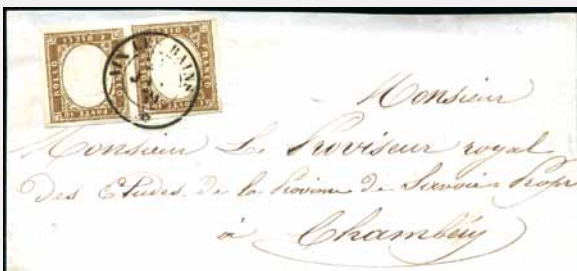 AIX LES BAINS
Monsieur
Monsieur Le Proviseur royal
des Etudes de la Province de Savoie Propr
à Chambéry